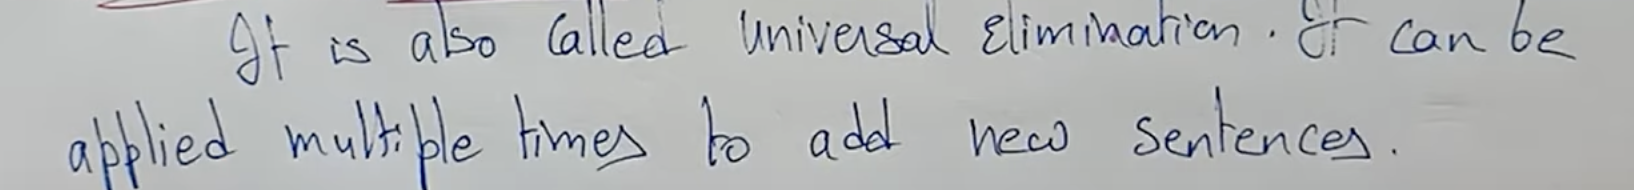 It is also called Universal Elimination. It can be
applied multiple times to add new sentences.